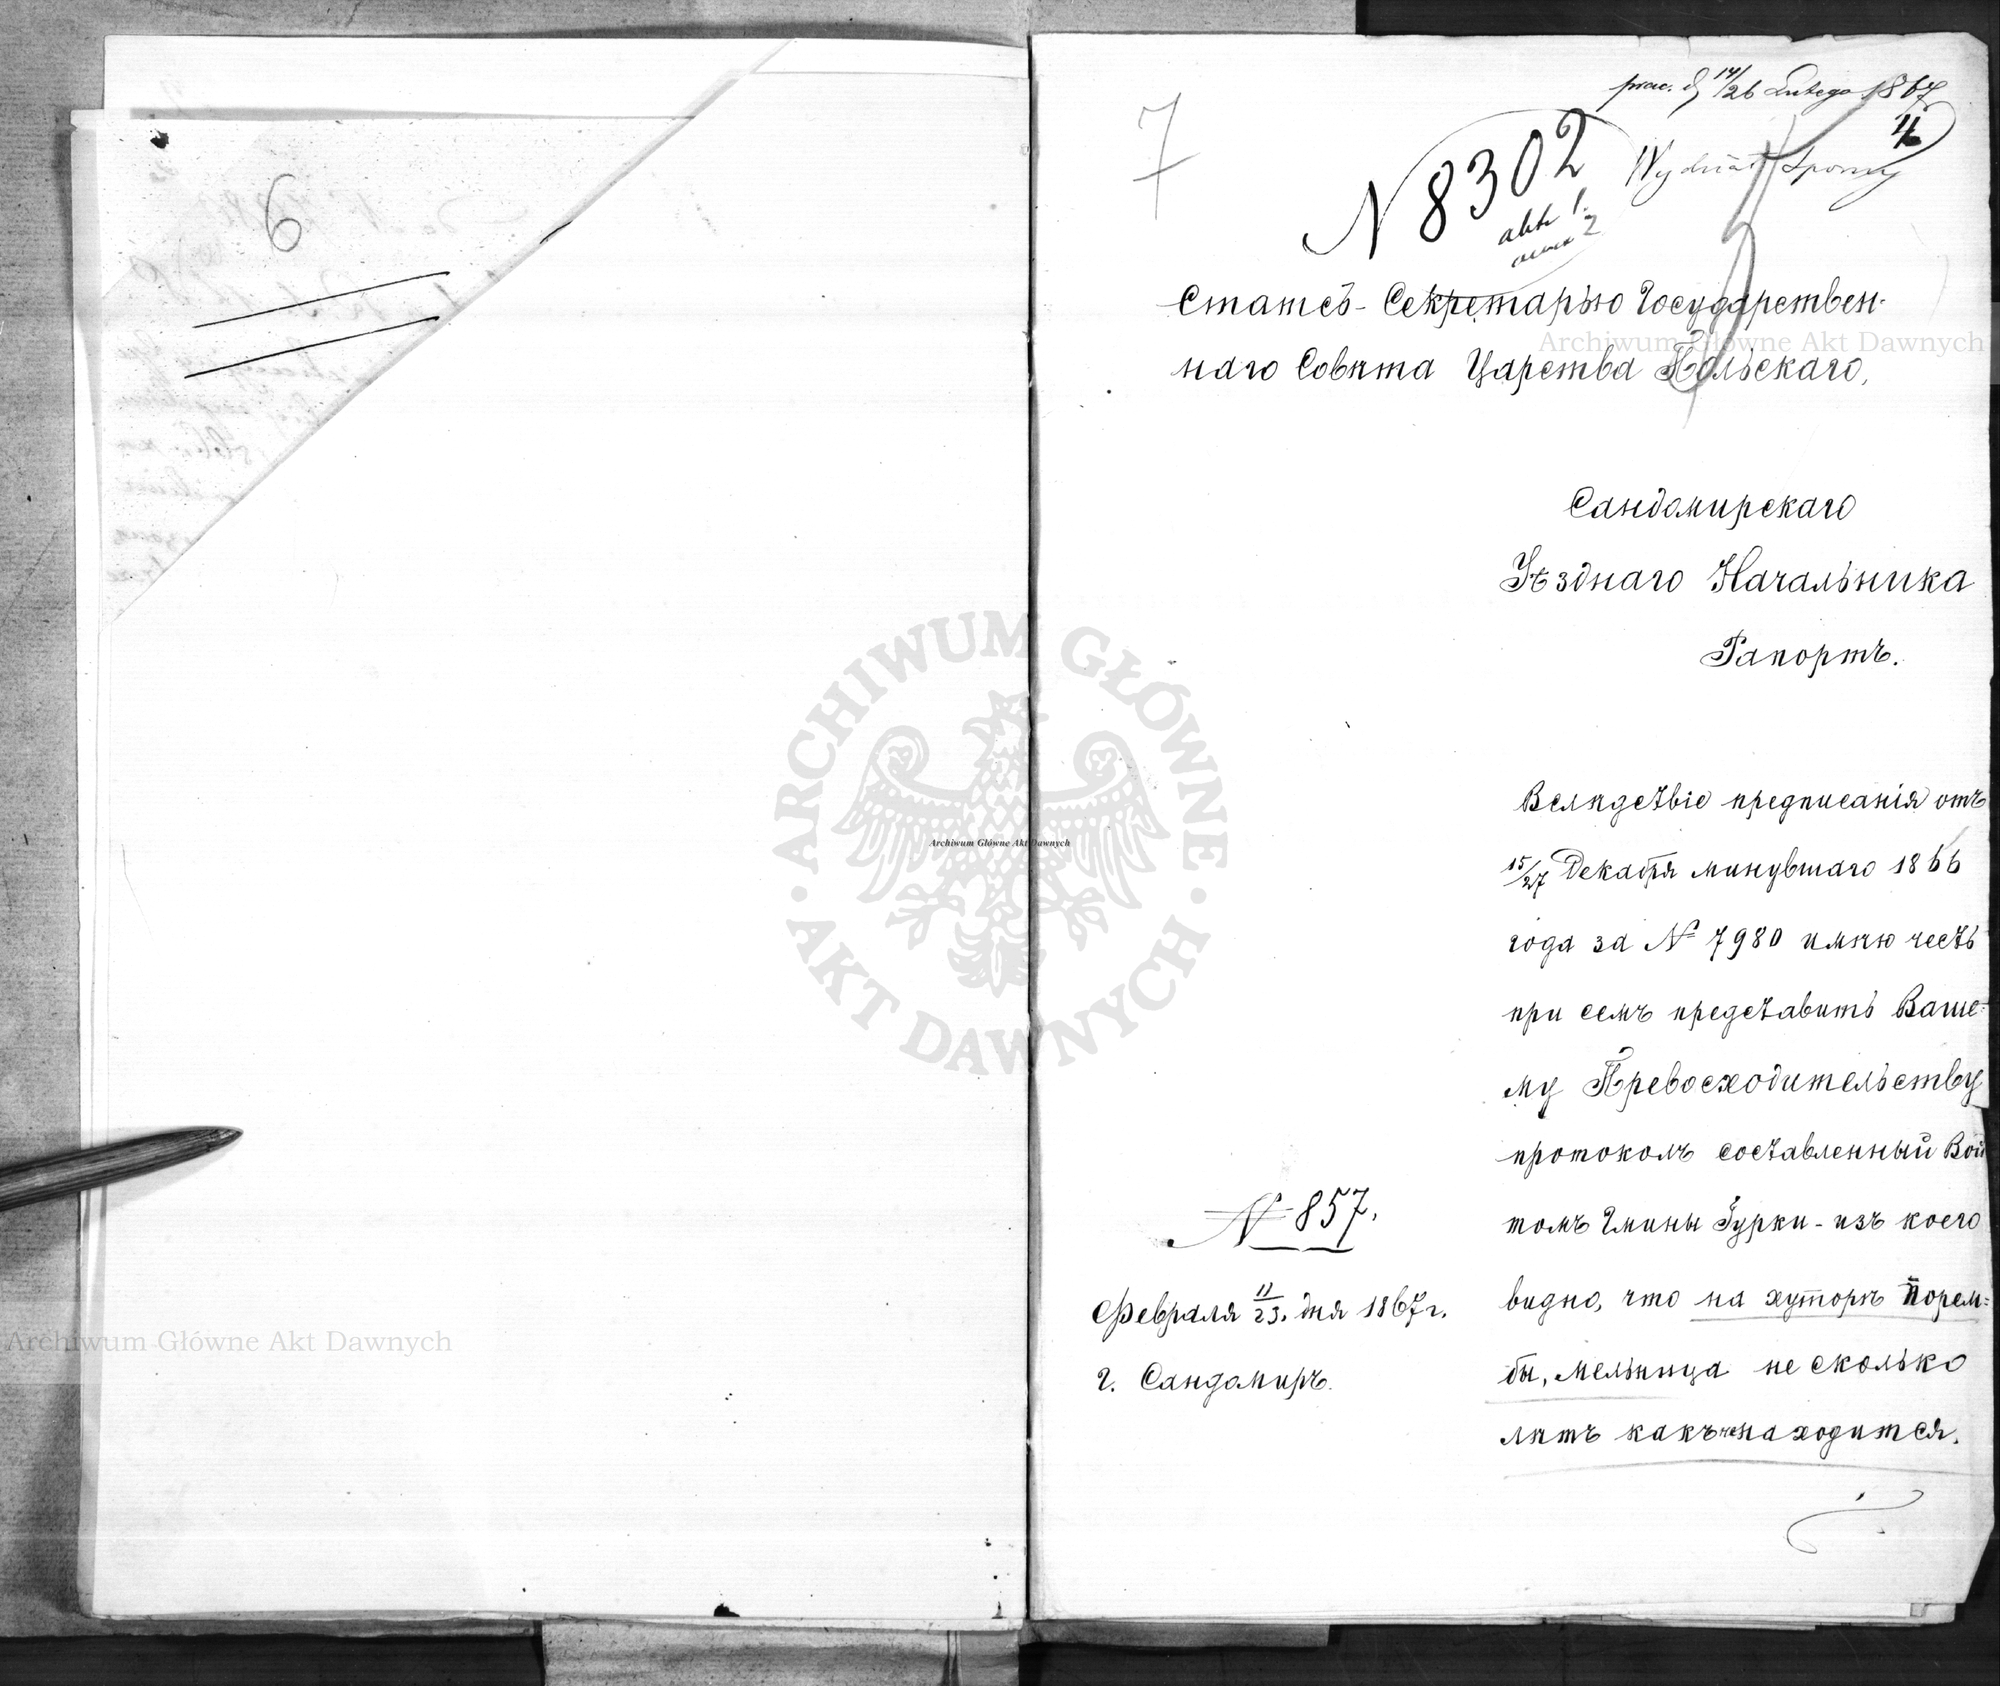 6
7
prac. d. 14/26 Lutego 1867
4
N 8302
Wydział Sporny
Статсъ-Секретарью Государствен-
наго Совѣта Царства Польскаго,
Сандомирскаго
Уѣзднаго Начальника
Рапортъ.
Вслѣдствіе предписанія отъ
15/27 Декабря минувшаго 1866
года за № 7980 имѣю честь
при семъ представить Ваше-
му Превосходительству
протоколъ составленный Вой
томъ Гмины Гурки - изъ коего
видно, что на хуторѣ Порем-
бы, мельница не сколько
лѣтъ какъ не находится.
№ 857.
Февраля 11/23. дня 1867 г.
г. Сандомиръ.
Archiwum Główne Akt Dawnych
Archiwum Główne Akt Dawnych
Archiwum Główne Akt Dawnych
ARCHIWUM GŁÓWNE · AKT DAWNYCH ·